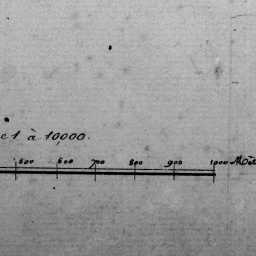 c 1 à 10,000.
500 600 700 800 900 1000 Mèt